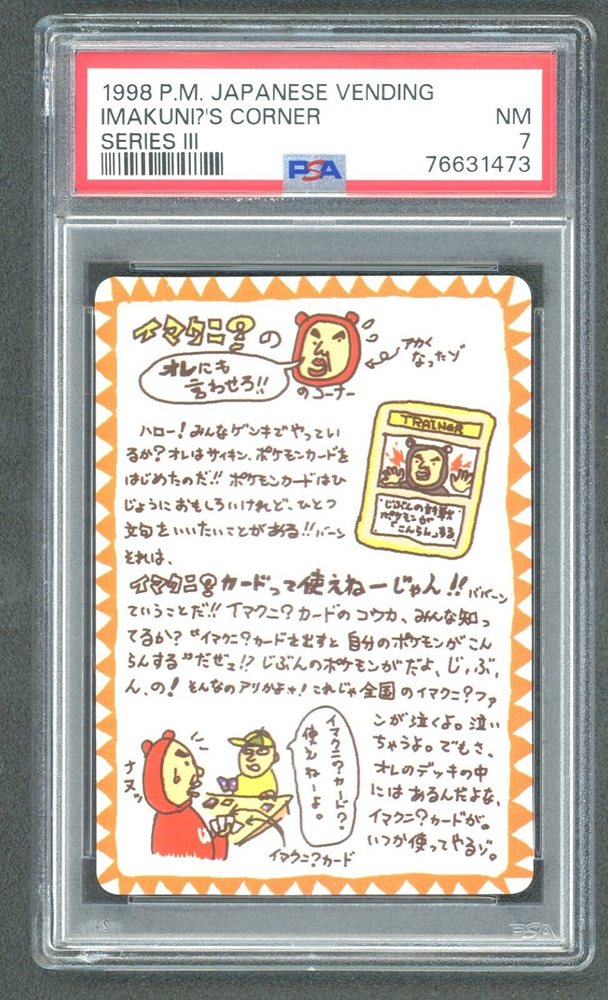 1998 P.M. JAPANESE VENDING
IMAKUNI?'S CORNER
NM
SERIES III
7
PSA
76631473
イマクニ?の
オレにも
言わせろ!!
のコーナー
アカく
なったゾ
ハロー!みんなゲンキでやってい
るか?オレはサイキン、ポケモンカードを
はじめたのだ!!ポケモンカードはひ
じょうにおもしろいけれど、ひとつ
文句をいいたいことがある!!バーン
それは、
TRAINER
じぶんの対戦
ポケモンが
「こんらん」する
イマクニ?カードって使えねーじゃん!!ババーン
ていうことだ!!イマクニ?カードのコウカ、みんな知っ
てるか?“イマクニ?カードをだすと自分のポケモンがこん
らんする”だぜェ!?じぶんのポケモンがだよ、じ,ぶ,
ん,の!そんなのアリかよォ!これじゃ全国のイマクニ?ファ
ンが泣くよ。泣い
ちゃうよ。でもさ、
オレのデッキの中
にはあるんだよな、
イマクニ?カードが。
いつか使ってやるゾ。
イマクニ?カード?
使えねーよ。
ナヌッ
イマクニ?カード
PSA